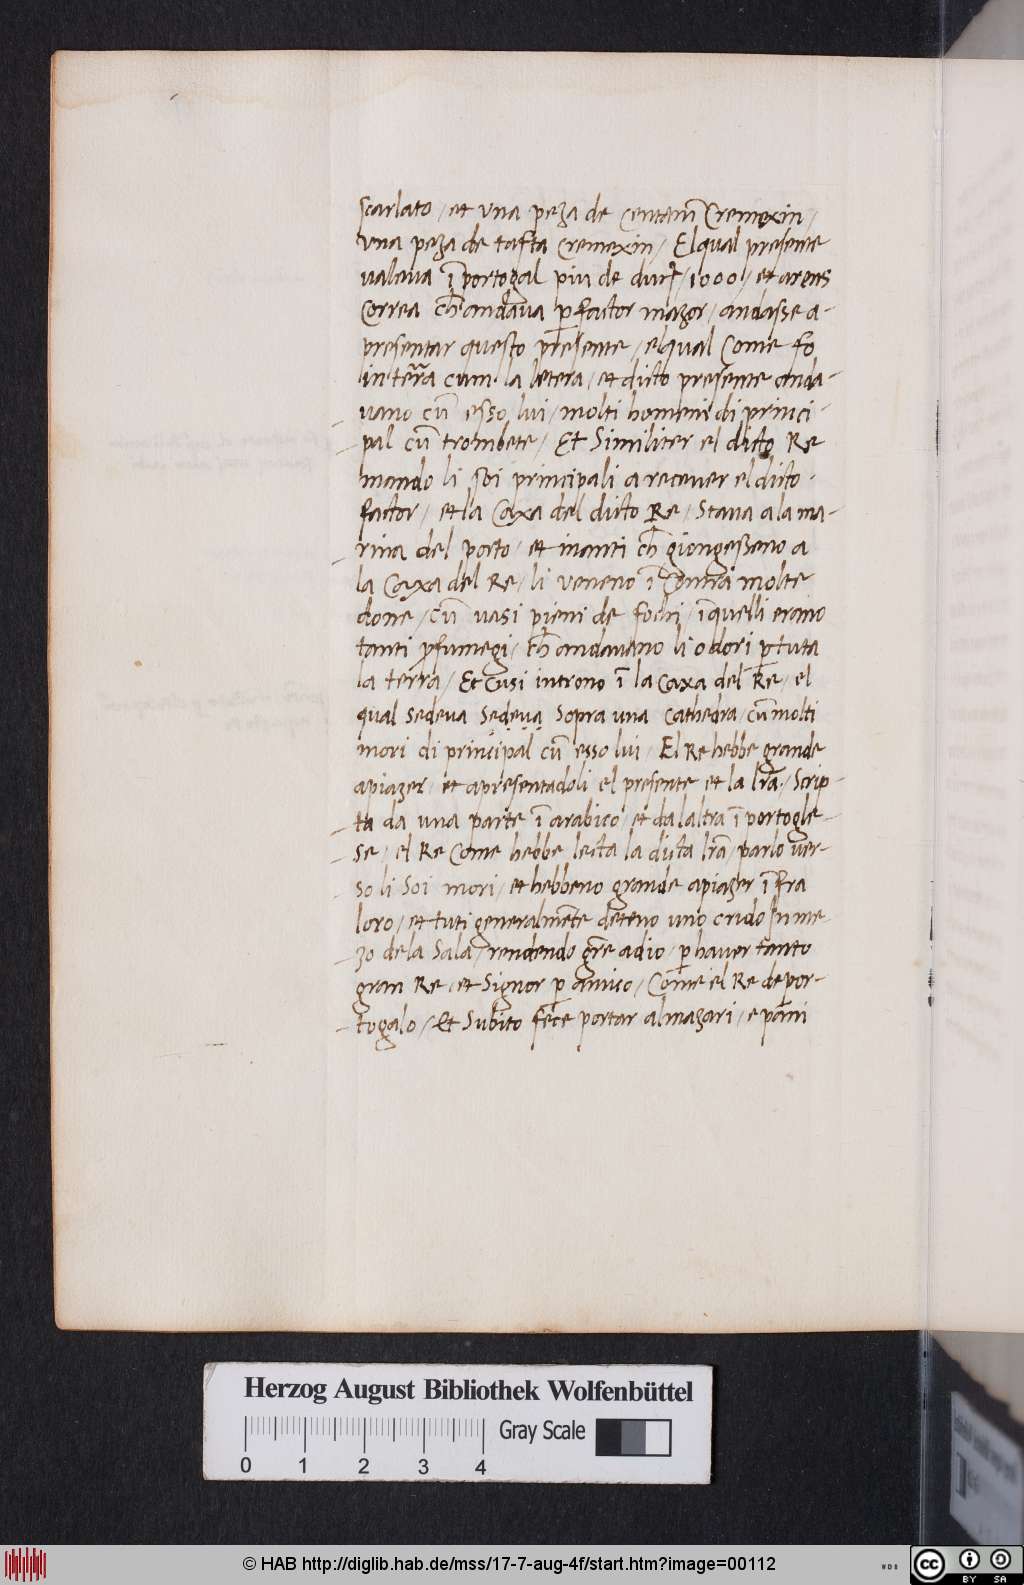 scarlato / et una peza de Centanĩ Cremexin /
una peza de tafta Cremexin / Elqual presente
ualeua ĩ portogal piu de duc̃ / 1000 / et arens
Correa ch̃ andaua ꝑ factor mazor / andasse a-
presentar questo presente / elqual Come fo
in terra cum la letera / et dicto presente anda-
uano cũ esso lui / molti homeni di princi-
pal cũ trombete / Et Similiter el dicto Re
mando li soi principali a receuer el dicto
factor / et la Caxa del dicto Re / Staua a la ma-
rina del porto / et inanti ch̃ giongesseno a
la Caxa del Re / li veneno ĩ Contra molte
done / cũ uasi pieni de fochi / ĩ quelli erano
tanti ꝑfumegi / ch̃ andaueno li odori ꝑ tuta
la terra / Et Cusi introno ĩ la Caxa del Re / el
qual sedeua sedeua sopra una cathedra / cũ molti
mori di principal cũ esso lui / El Re hebbe grande
apiazer / et apresentadoli el presente et la lr̃a / Scrip-
ta da una parte ĩ arabico / et da laltra ĩ portogle-
se / el Re Come hebbe lecta la dicta lr̃a / parlo uer-
so li Soi mori / et hebbeno grande apiazer ĩ fra
loro / et tuti generalmẽte deteno uno crido In me-
zo de la Sala / rendendo gr̃e adio / ꝑ hauer tanto
gran Re / et Signor ꝑ amico / Come el Re de por-
togalo / Et Subito fece portar almazari / e pãni
Herzog August Bibliothek Wolfenbüttel
0 1 2 3 4
Gray Scale
© HAB http://diglib.hab.de/mss/17-7-aug-4f/start.htm?image=00112
cc BY SA